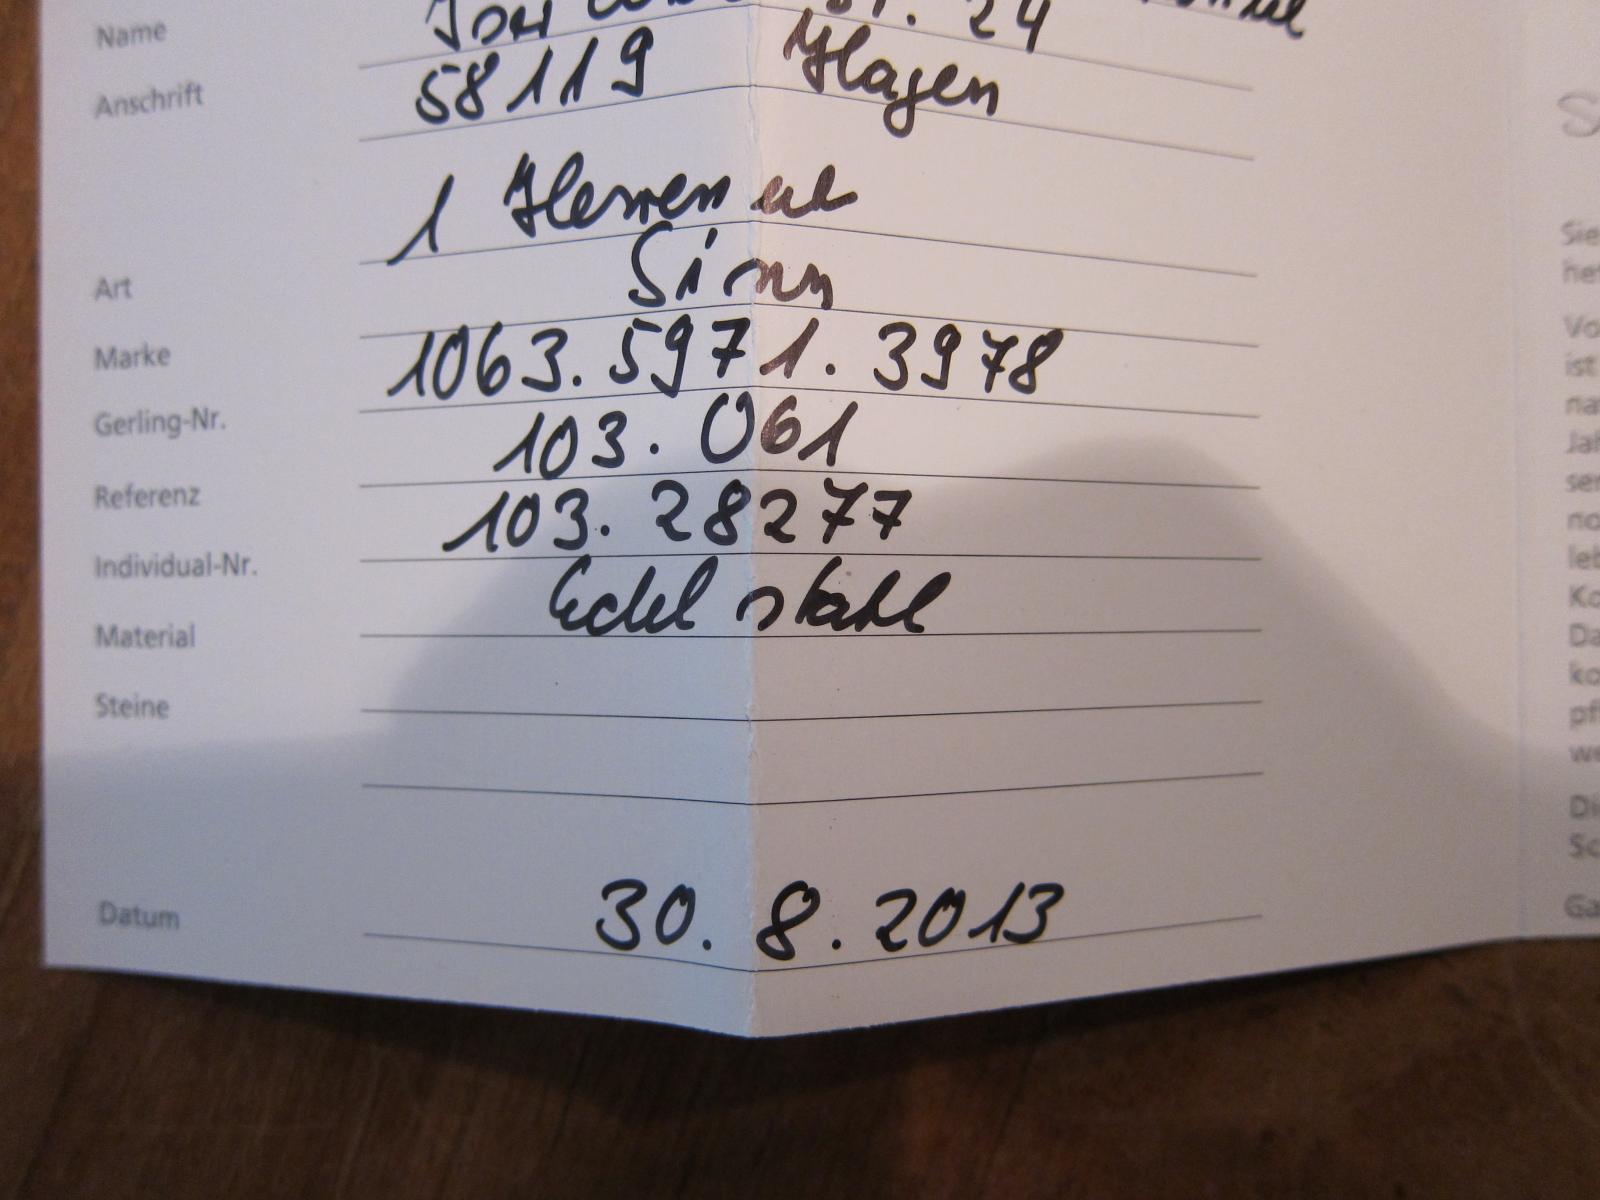 Name
24
Anschrift 58119 Hagen
1 Herrenuhr
Art Sinn
Marke 1063.5971.3978
Gerling-Nr. 103.061
Referenz 103.28277
Individual-Nr. Edelstahl
Material
Steine
Datum 30.8.2013
Sie
ist